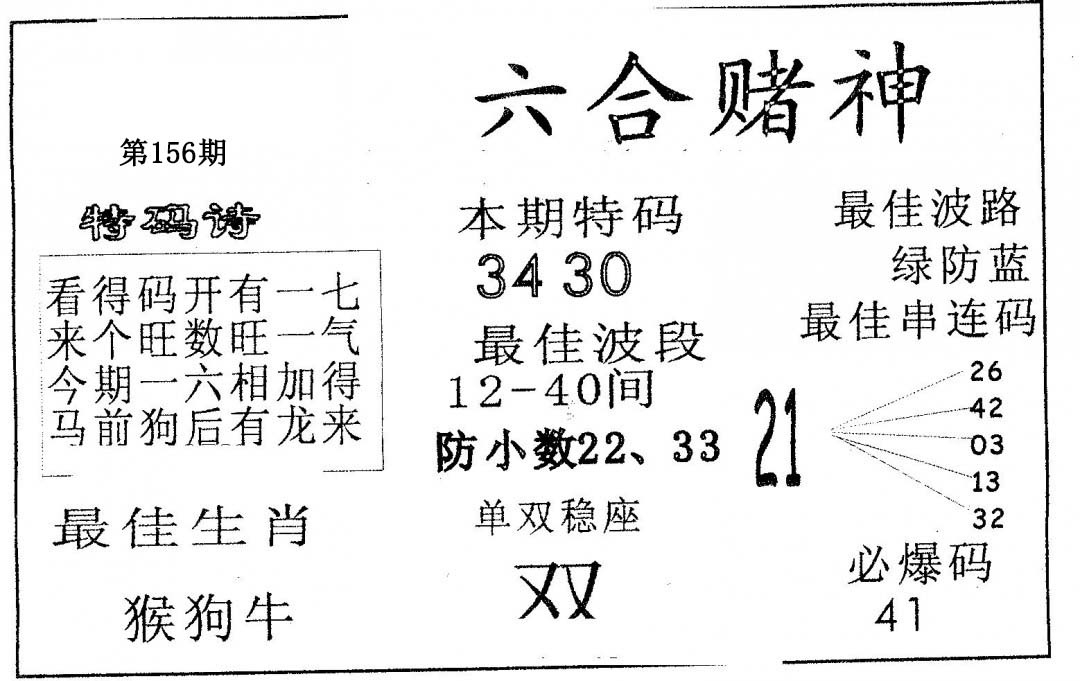 六合赌神
第156期
特码诗
看得码开有一七
来个旺数旺一气
今期一六相加得
马前狗后有龙来
最佳生肖
猴狗牛
本期特码
34 30
最佳波段
12-40间
防小数22、33
单双稳座
双
最佳波路
绿防蓝
最佳串连码
21
26
42
03
13
32
必爆码
41